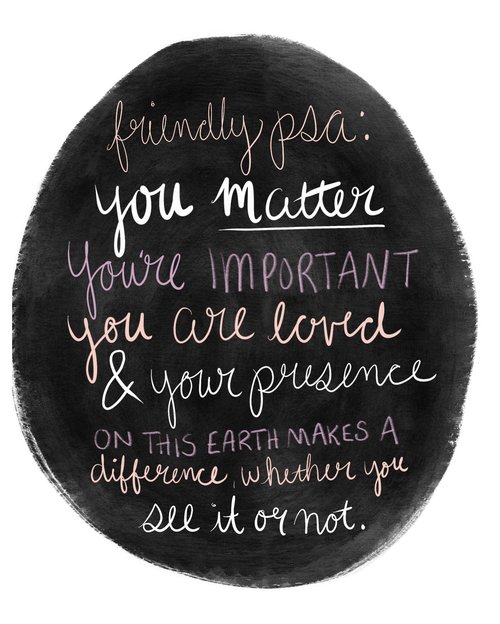 friendly psa:
you matter
you're IMPORTANT
you are loved
& your presence
ON THIS EARTH MAKES A
difference, whether you
see it or not.